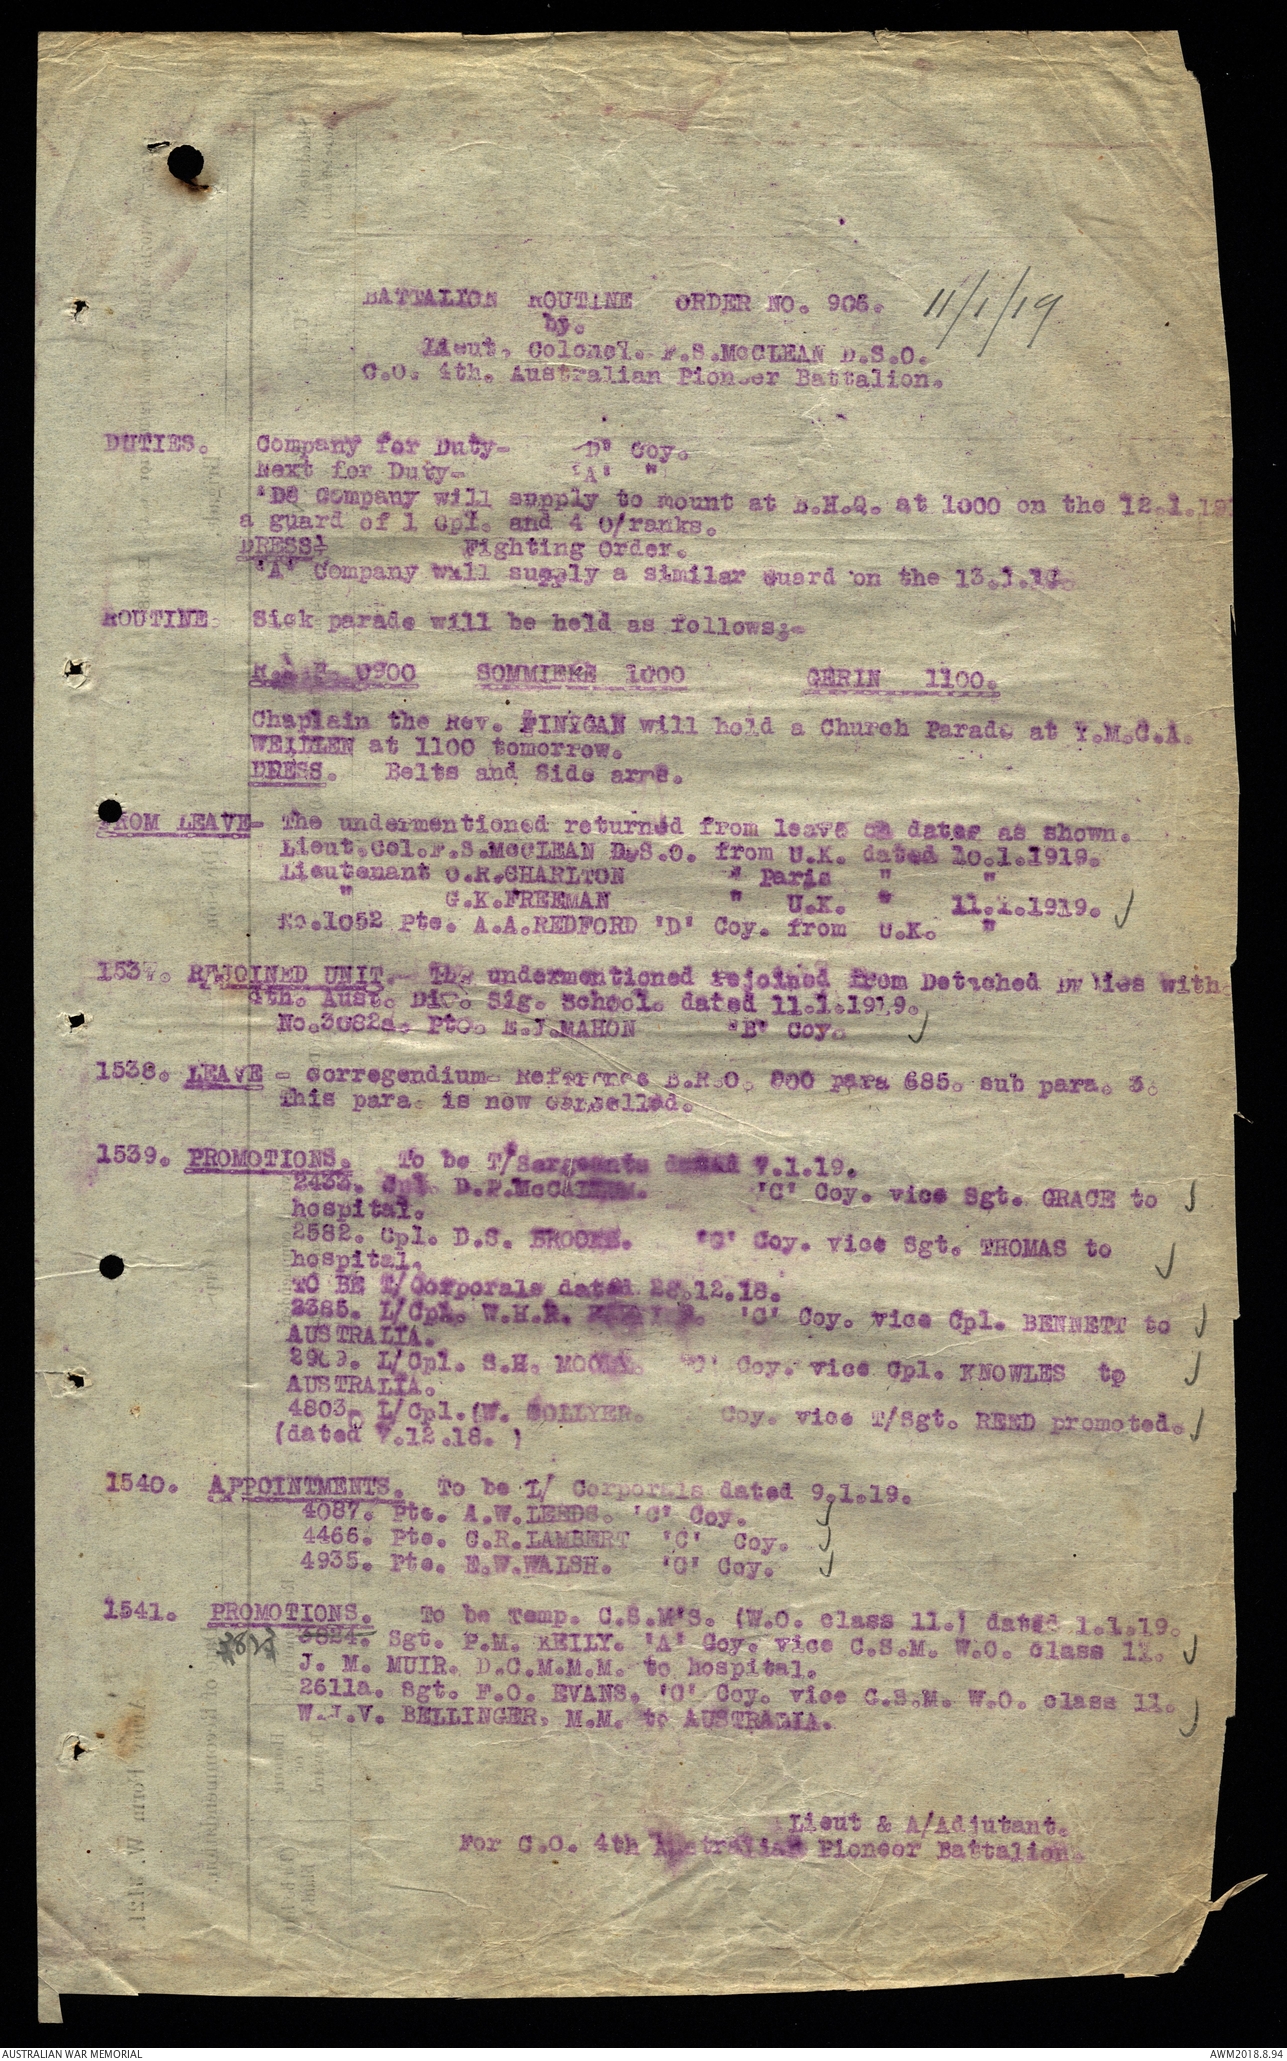 BATTALION ROUTINE ORDER NO. 906. 11/1/19
by.
Lieut, Colonel. F.S.McCLEAN D.S.O.
C.O. 4th. Australian Pioneer Battalion.
DUTIES. Company for Duty- 'D' Coy.
Next for Duty- 'A' "
'D' Company will supply to mount at B.H.Q. at 1000 on the 12.1.19
a guard of 1 Cpl. and 4 O/ranks.
DRESS- Fighting Order.
'A' Company will supply a similar guard on the 13.1.19.
ROUTINE Sick parade will be held as follows;-
0900 SOMMIERE 1000 GERIN 1100.
Chaplain the Rev. FINIGAN will hold a Church Parade at Y.M.C.A.
WEILLEN at 1100 tomorrow.
DRESS. Belts and Side arms.
FROM LEAVE- The undermentioned returned from leave on dates as shown.
Lieut.Col.F.S.McCLEAN D.S.O. from U.K. dated 10.1.1919.
Lieutenant O.R.CHARLTON " Paris " "
" G.K.FREEMAN " U.K. " 11.1.1919.
No.1052 Pte. A.A.REDFORD 'D' Coy. from U.K. "
1537. REJOINED UNIT.- The undermentioned rejoined from Detached Duties with
4th. Aust. Div. Sig. School. dated 11.1.1919.
No.3082a. Pte. E.J.MAHON 'B' Coy.
1538. LEAVE - Corregendium- Reference B.R.O. 900 para 685. sub para. 3.
This para. is now cancelled.
1539. PROMOTIONS. To be T/Sergeants dated 7.1.19.
2433. Cpl. D.P. 'C' Coy. vice Sgt. GRACE to
hospital.
2582. Cpl. D.S. BROOKE. 'C' Coy. vice Sgt. THOMAS to
hospital.
TO BE T/Corporals dated 28.12.18.
2385. L/Cpl. W.H.R. 'C' Coy. vice Cpl. BENNETT to
AUSTRALIA.
L/Cpl. S.H. 'C' Coy. vice Cpl. KNOWLES to
AUSTRALIA.
4803. L/Cpl. W. COLLYER. Coy. vice T/Sgt. REED promoted.
(dated 7.12.18. )
1540. APPOINTMENTS. To be L/ Corporals dated 9.1.19.
4087. Pte. A.W.LEEDS. 'C' Coy.
4466. Pte. G.R.LAMBERT 'C' Coy.
4935. Pte. E.W.WALSH. 'C' Coy.
1541. PROMOTIONS. To be Temp. C.S.M'S. (W.O. class 11.) dated 1.1.19.
3824. Sgt. P.M. REILY. 'A' Coy. vice C.S.M. W.O. class 11.
J. M. MUIR. D.C.M.M.M. to hospital.
2611a. Sgt. F.O. EVANS. 'C' Coy. vice C.S.M. W.O. class 11.
W.J.V. BELLINGER, M.M. to AUSTRALIA.
Lieut & A/Adjutant.
For C.O. 4th Australian Pioneer Battalion.
AUSTRALIAN WAR MEMORIAL AWM2018.8.94